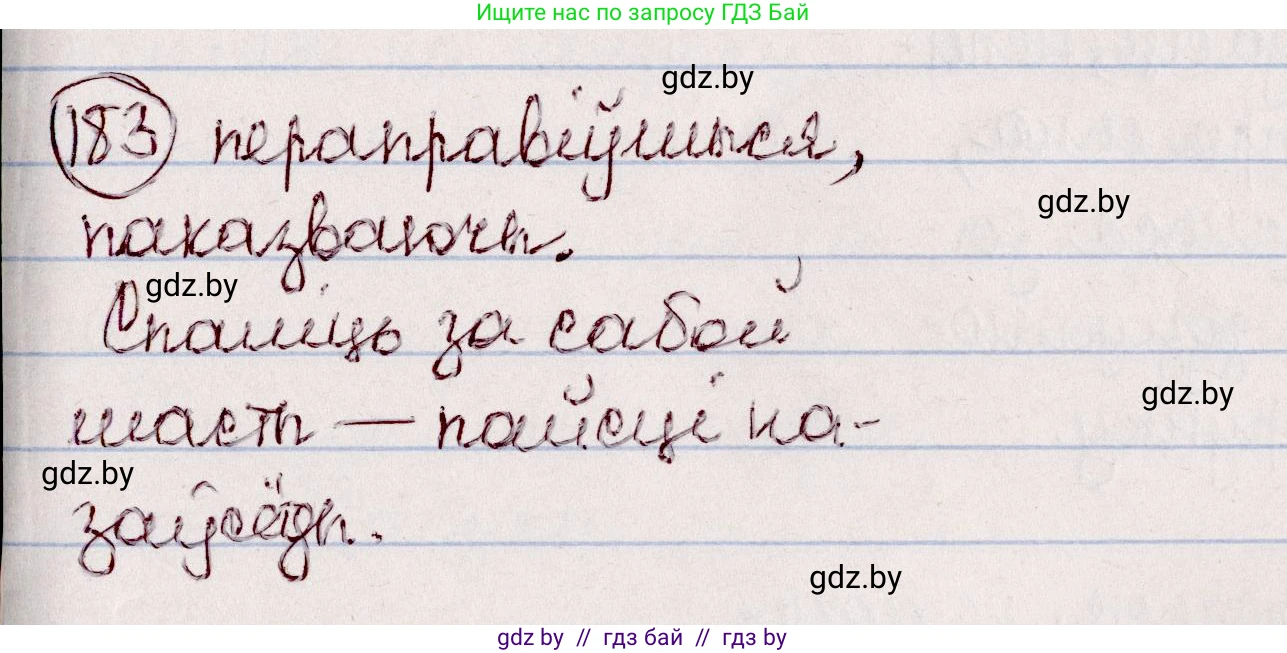 Ищите нас по запросу ГДЗ Бай
gdz.by
183 пераправіўшыся,
gdz.by
паказваючы.
gdz.by
Спаліць за сабой
gdz.by
масты — пайсці на-
gdz.by
заўсёды.
gdz.by
gdz by // гдз бай // гдз by